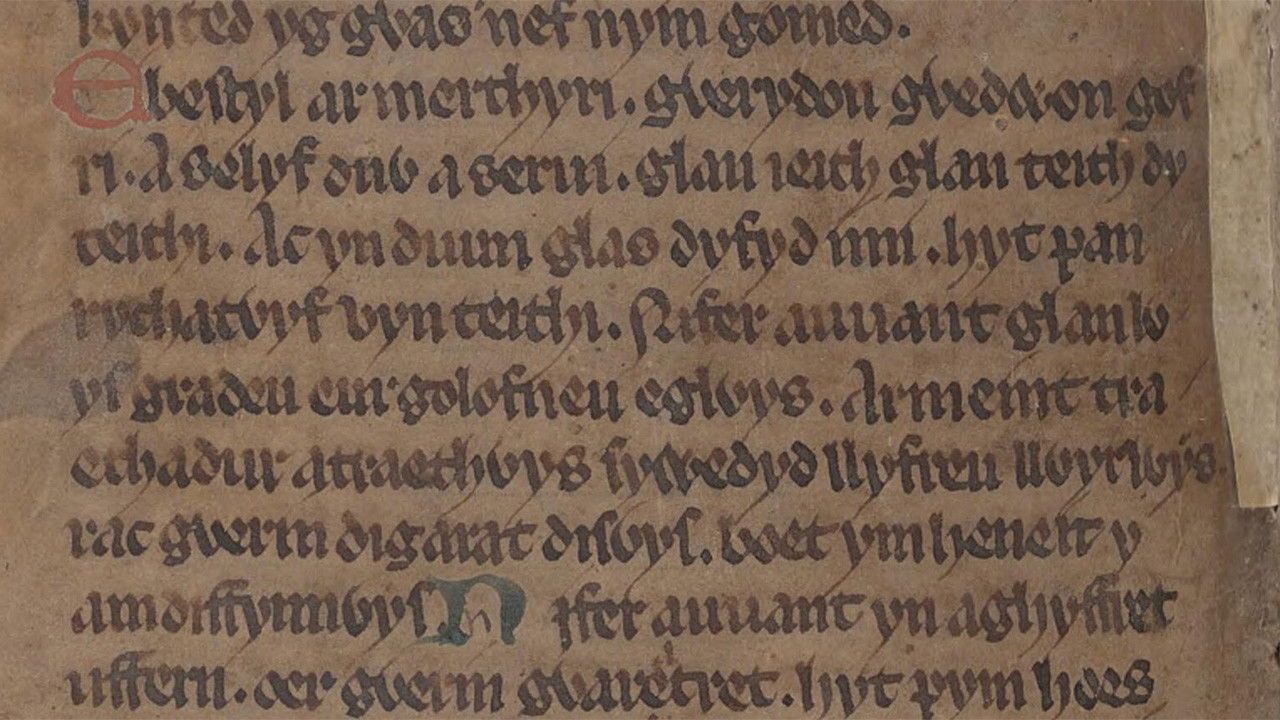 kynted yg gỽas nef nym gomed.
Ebestyl ar merthyri. gỽerydon gỽedwon gof
ri. A selyf duỽ a serui. glan ieith glan teith dy
teithi. Ac yn duun glas dyfyd imi. hyt pan
rychatỽyf ỽyn teithi. Nifer auuant glanlỽ
yf gradeu eur golofneu eglỽys. Ar meint tra
ethadur atraethỽys sywedyd llyfreu llỽyrỽys.
rac gỽerin digarat disỽys. boet ym heneit y
amdiffynnỽys Nifer auuant yn aghyffret
uffern. oer gỽerin gỽaretret. hyt pym hoes